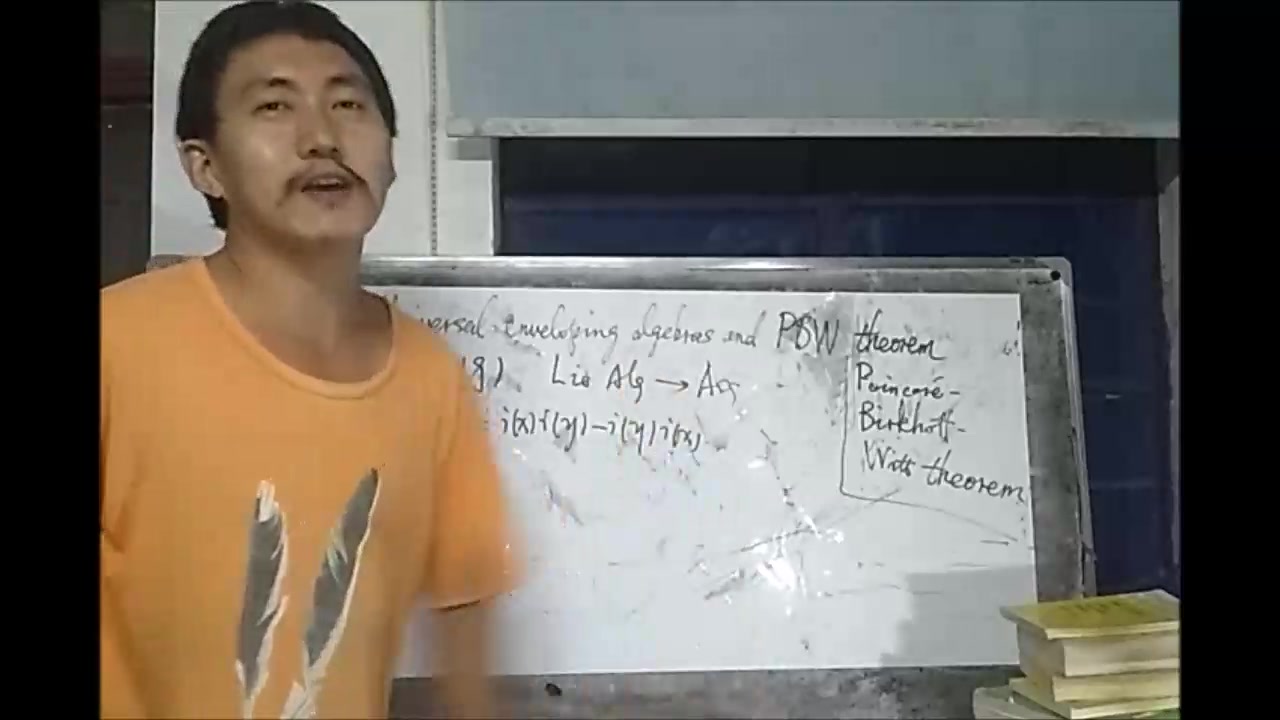 versal enveloping algebras and PBW theorem
g) Lie Alg → Ass
= i(x)i(y)-i(y)i(x)
Poincaré-
Birkhoff-
Witt theorem